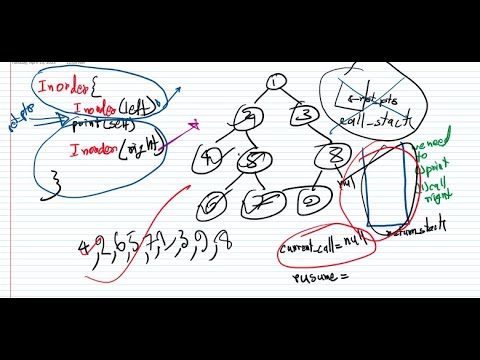 Inorder{
Inorder(left)
ret pts
print(self)
Inorder(right)
}
1
2
3
4
5
8
6
7
9
null
ret pts
call_stack
we need
to
print
call
right
return_stack
current_call = null
rusume =
4,2,6,5,7,1,3,9,8